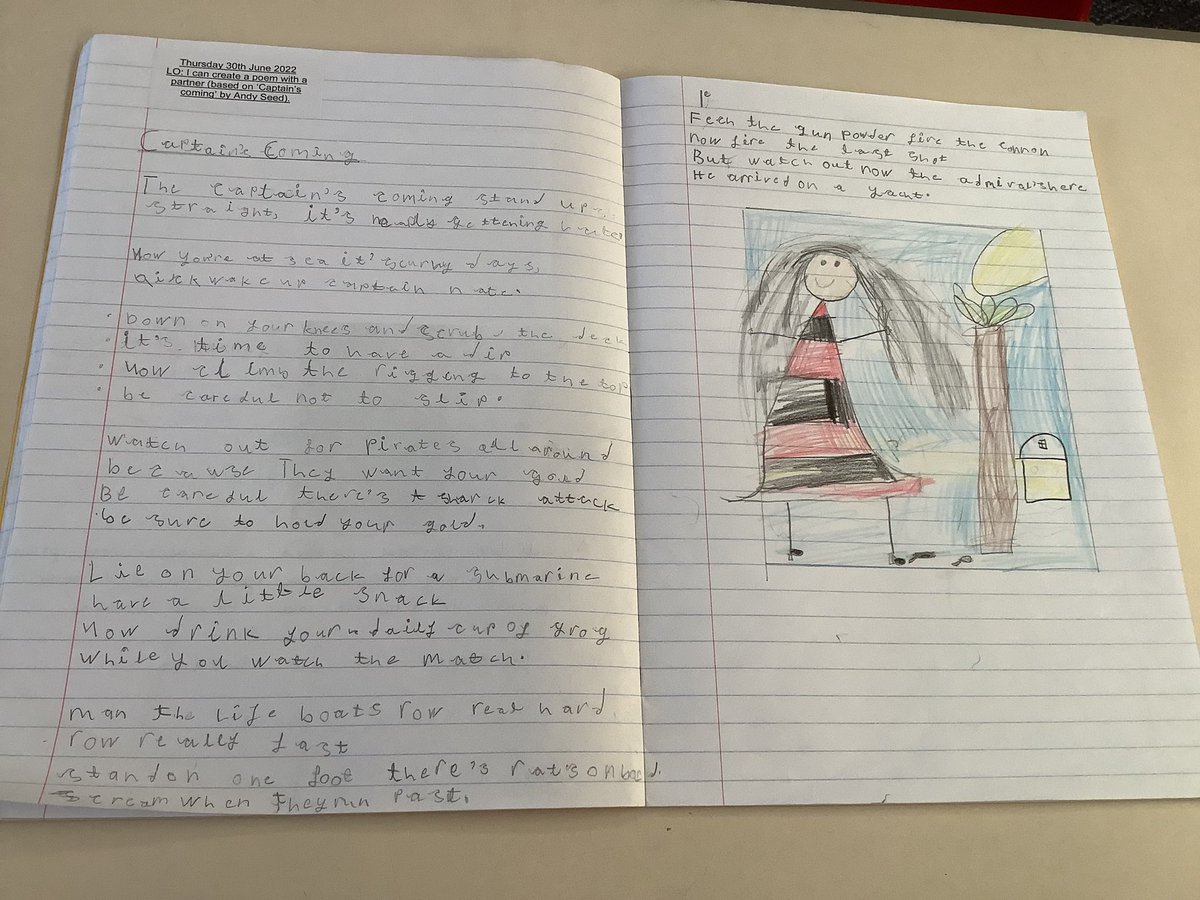 Thursday 30th June 2022
LO: I can create a poem with a
partner (based on 'Captain's
coming' by Andy Seed).
Captain's Coming
The captain's coming stand up
straight, it's getting
Now you're at sea it's scurvy days,
qick wake up captain nate.
Down on your knees and scrub the deck
it's time to have a dip
Now climb the rigging to the top
be careful not to slip.
Watch out for pirates all around
because They want your gold
Be careful there's shark attack
be sure to hold your gold.
Lie on your back for a submarine
have a little snack
Now drink your daily cup of grog
while you watch the match.
man the Life boats row real hard
row really fast
stand on one foot there's rats on
scream when they run past.
Feth the gun powder fire the cannon
now fire the last shot
But watch out now the admirals here
He arrived on a yacht.